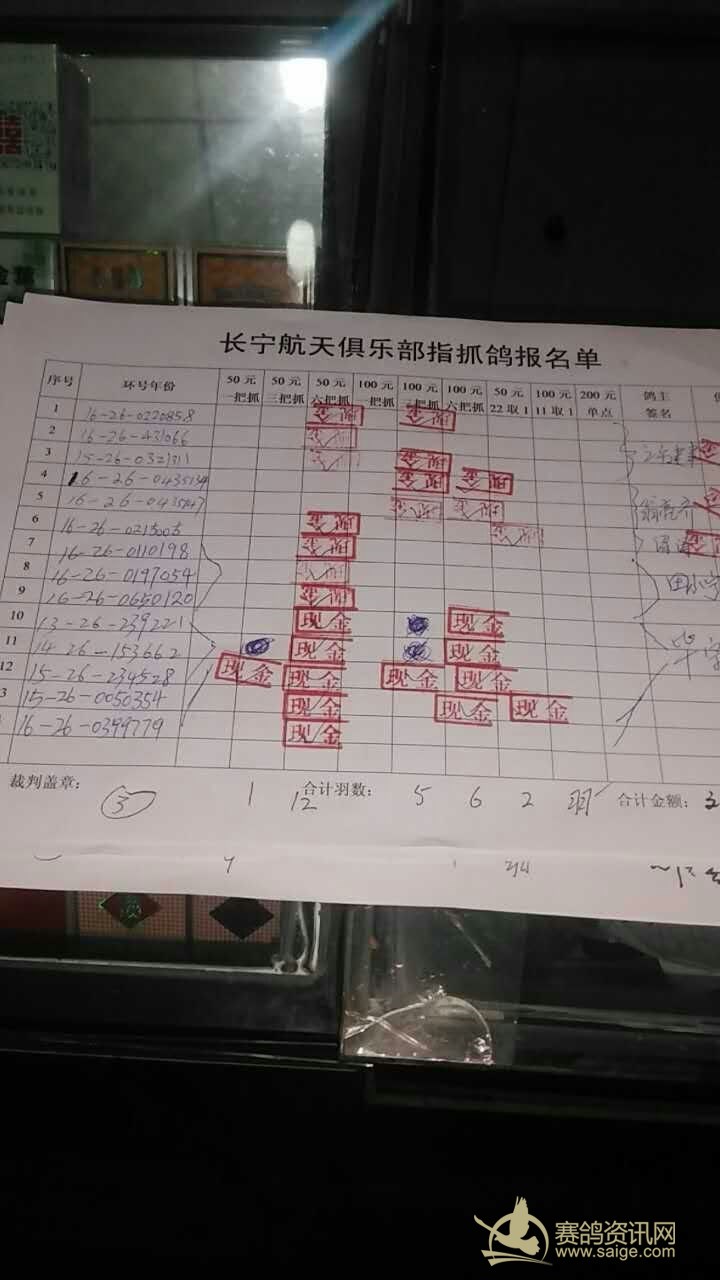 长宁航天俱乐部指抓鸽报名单
序号 环号年份 50元一把抓 50元三把抓 50元六把抓 100元一把抓 100元三把抓 100元六把抓 50元22取1 100元11取1 200元单点 鸽主签名
1 16-26-0220858 现金 现金
2 16-26-431066 现金
3 15-26-0321311 现金 现金
4 16-26-0435134 现金 现金
5 16-26-0435147 现金 现金
6 16-26-0215005 现金 现金
7 16-26-0110198 现金
8 16-26-0197054 现金
9 16-26-0650120 现金
10 13-26-239221 现金 现金
11 14-26-153662 现金 现金
12 15-26-234528 现金 现金 现金 现金
3 15-26-0050354 现金 现金 现金
16-26-0399779 现金
裁判盖章: 3 1 12 合计羽数: 5 6 2 羽 合计金额:
赛鸽资讯网
www.saige.com